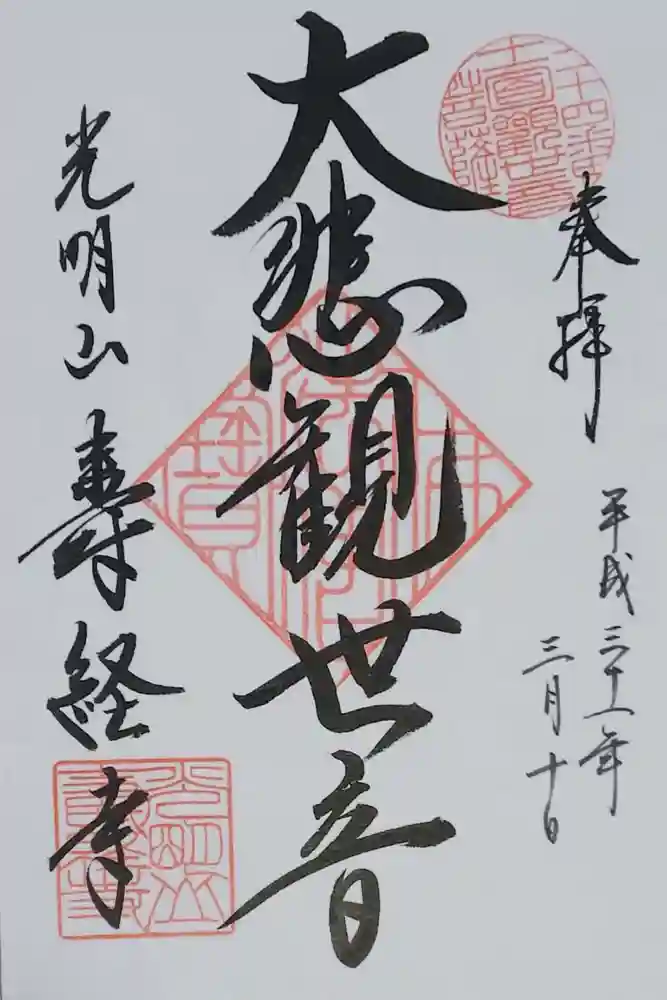 奉拝
平成三十一年
三月十日
大悲観世音
光明山 寿経寺